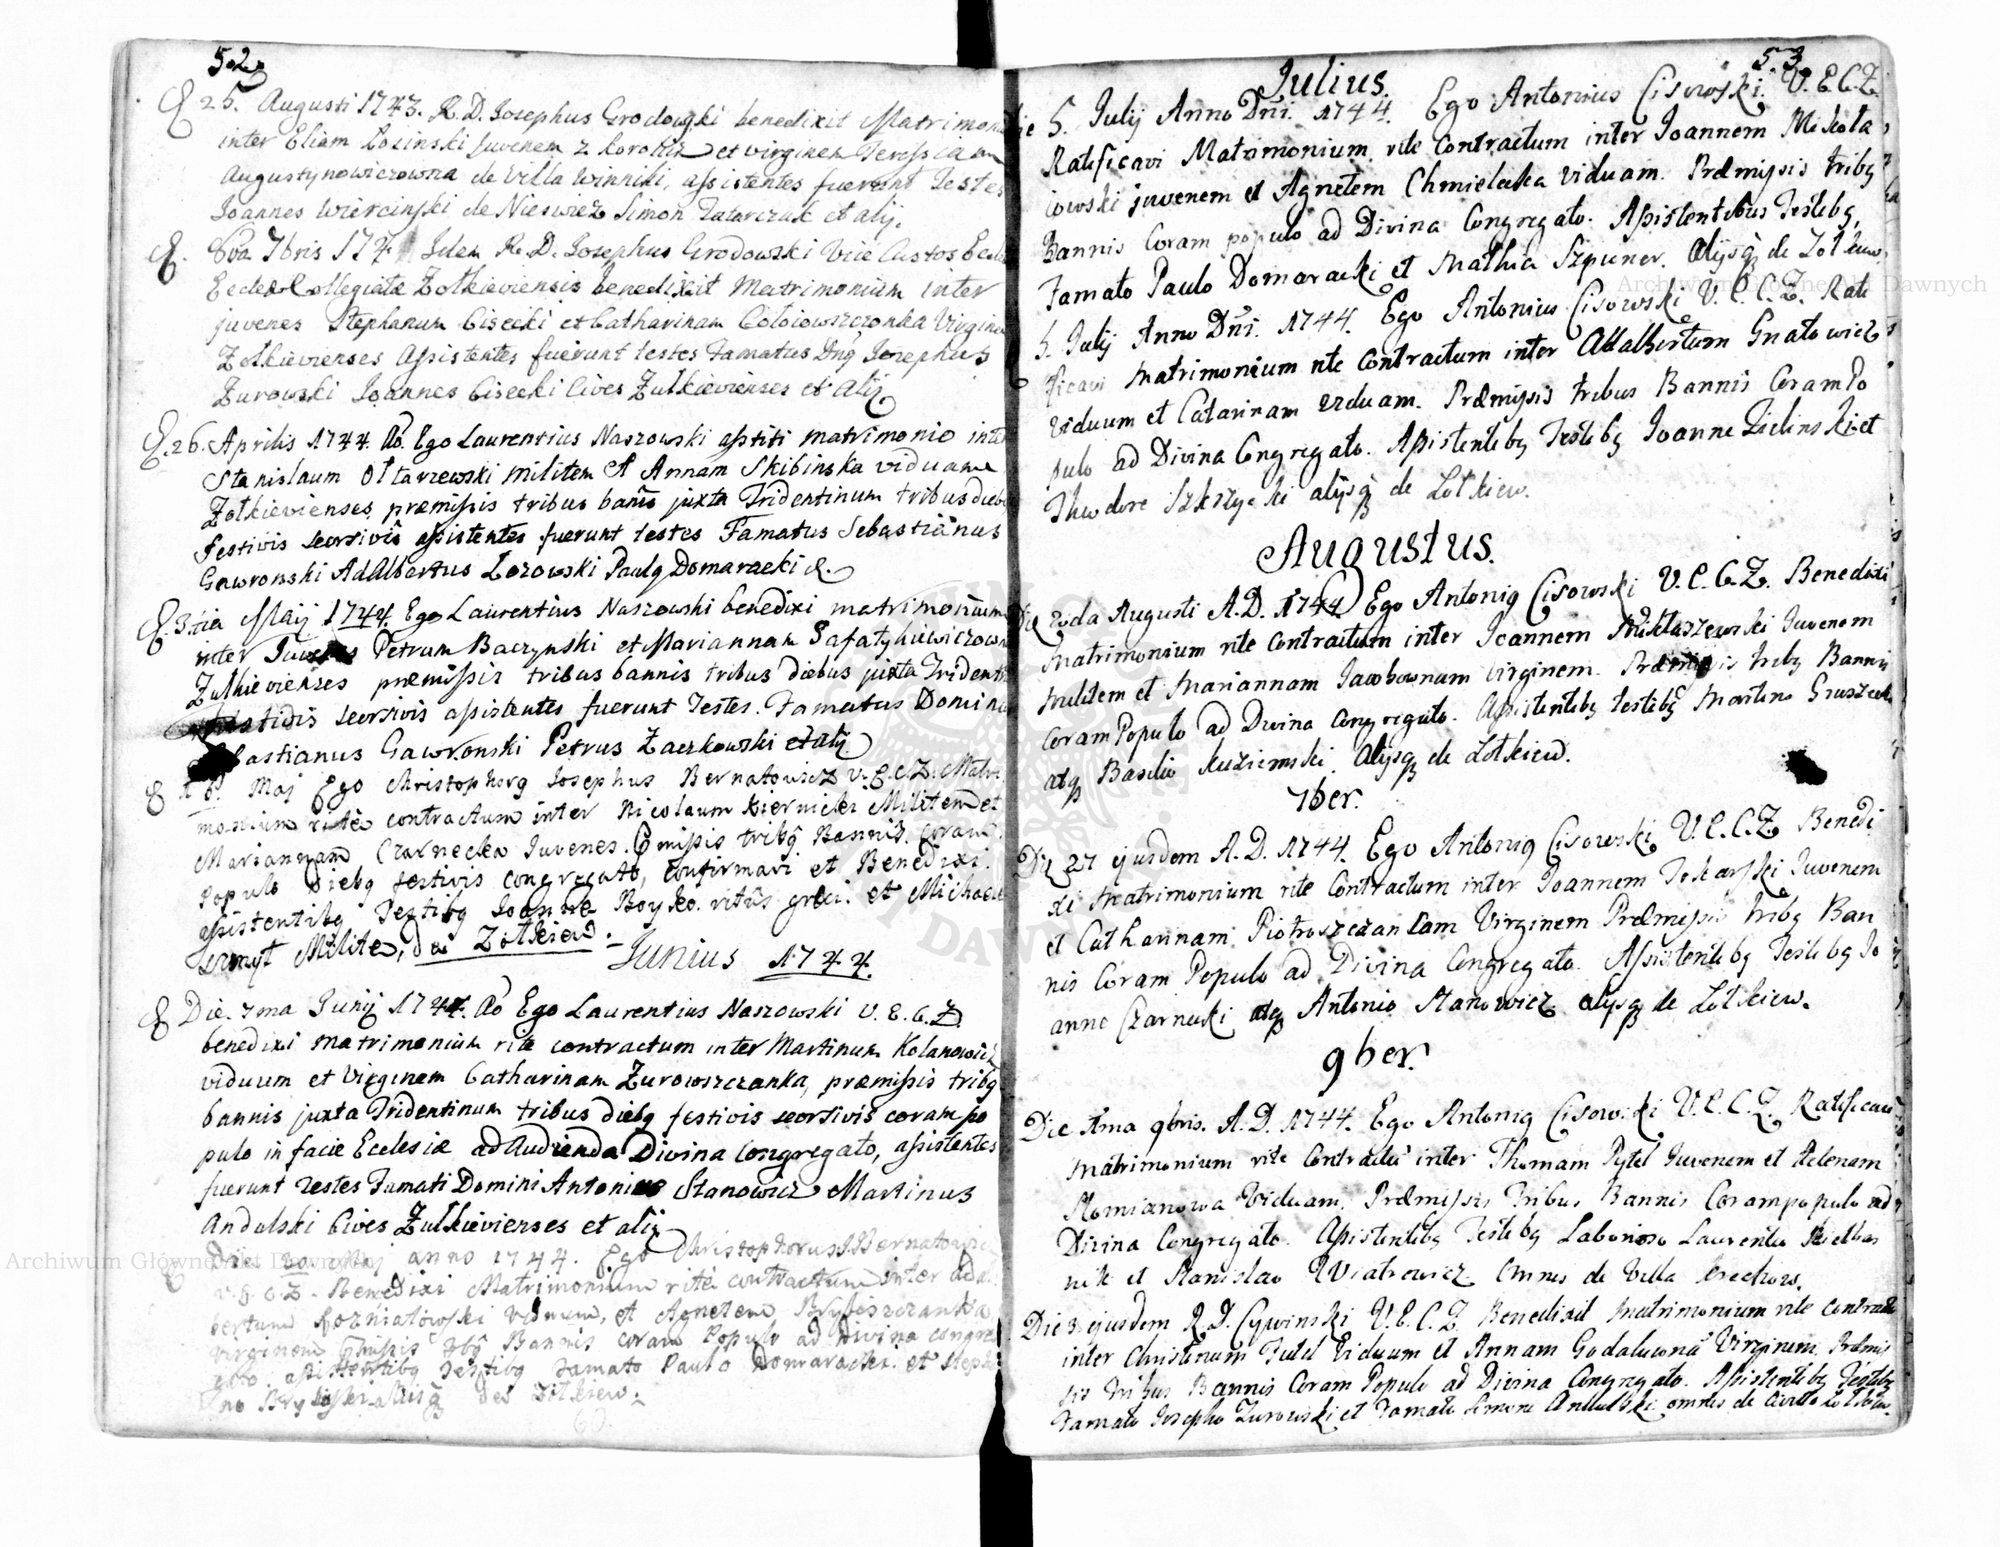 52.
25. Augusti 1743. R. D. Josephus Grodowski benedixit Matrimon
inter Eliam Losinski juvenem z et virginem
Augustynowiczowna de Villa Winniki, assistentes fuerunt Testes
Joannes Wiercinski de Nieswiez Simon Tatarczuk et alij.
8va 7bris 174 Idem R. D. Josephus Grodowski Vice Custos
Collegiatæ Zolkieviensis benedixit Matrimonium inter
juvenes Stephanum Cisecki et Catharinam Virgine
Zolkievienses Assistentes fuerunt testes Famatus Dnq Josephus
Zurowski Joannes Cisecki Cives Zulkievienses et alij
26. Aprilis 1744. Ao. Ego Laurentius Naszowski astiti matrimonio inter
Stanislaum Oltarzewski militem et Annam Skibinska viduam
Zolkievienses præmissis tribus bannis juxta Tridentinum tribus dieb
festivis seorsivis assistentes fuerunt testes Famatus Sebastianus
Gawronski Adalbertus Lozowski Paulq Domaracki &.
3tia Maij 1744. Ego Laurentius Naszowski benedixi matrimonium
inter Petrum Baczynski et Mariannam
Zulkievienses præmissis tribus bannis tribus diebus juxta Trident
festivis seorsivis assistentes fuerunt Testes. Famatus Dominus
bastianus Gawronski Petrus Zaczkowski et alij
Maj Ego Christophorq Josephus Bernatowicz V. E. C. Z. Matri
monium ritè contractum inter Nicolaum Kiernicki Militem et
Mariannam Czarnecka Juvenes. Præmissis tribq Bannis. Coram
Populo Diebq festivis congregato, confirmavi et Benedixi.
assistentibq Testibq Joanne Boyko ritûs græci. et Michaele
Milite, de Zolkiew.
Junius 1744.
Die. 7ma Junij 1744. Ao Ego Laurentius Naszowski V. E. C. Z.
benedixi matrimonium rite contractum inter Martinum Kolanowicz
viduum et Virginem Catharinam Zurowszczanka, præmissis tribq
bannis juxta Tridentinum tribus diebq festivis seorsivis coram po
pulo in facie Ecclesiæ ad Audienda Divina congregato, assistentes
fuerunt Testes Famati Domini Antonius Stanowicz Martinus
Andulski Cives Zulkievienses et alij
Die Maj anno 1744. Ego Christophorus J Bernatowicz
V. E. C. Z. Benedixi Matrimonium ritè contractum inter Adal
bertum Pozniatowski viduum, et Agnetem
virginem Præmissis tribq Bannis coram Populo ad Divina congre
gato. assistentibq Testibq Famato Paulo Domaracki. et Stepha
no Alijsq de Zolkiew.
53.
Julius.
Die 5. Julij Anno Dni. 1744. Ego Antonius Cisowski. V. E. C. Z.
Ratificavi Matrimonium rite Contractum inter Joannem Mikola
iowski juvenem et Agnetem Chmielecka viduam. Præmissis tribq
Bannis Coram populo ad Divina Congregato. Assistentibus Testibq,
Famato Paulo Domaracki et Mathia Szpuner. Alijsq de Zolkiew.
5. Julij Anno Dni. 1744. Ego Antonius Cisowski V. E. C. Z. Rati
ficavi Matrimonium rite Contractum inter Adalbertum Gnatowicz
viduum et Catarinam viduam. Præmissis tribus Bannis Coram Po
pulo ad Divina Congregato. Assistentibq Testibq Joanne Zielinski et
Theodore alijsq de Zolkiew.
Augustus.
Die Augusti A. D. 1744 Ego Antoniq Cisowski V. E. C. Z. Benedixi
Matrimonium rite Contractum inter Joannem Mikłaszewski Juvenem
Militem et Mariannam Jacobownam Virginem. Præmissis tribq Bannis
Coram Populo ad Divina Congregato. Assistentibq testibq Martino
atq Basilio Kuziemski. Alijsq de Zolkiew.
7ber.
Die 27 ejusdem A. D. 1744. Ego Antoniq Cisowski V. E. C. Z. Benedi
xi Matrimonium rite Contractum inter Joannem Tokarski Juvenem
et Catharinam Piotroszczankam Virginem Præmissis tribq Ban
nis Coram Populo ad Divina Congregato. Assistentibq Testibq Jo
anne Czarnecki atq Antonio Stanowicz alijsq de Zolkiew.
9ber.
Die 1ma 9bris. A. D. 1744. Ego Antoniq Cisowski V. E. C. Z. Ratificavi
Matrimonium rite Contractu inter Thomam Pytel Juvenem et Helenam
Viduam. Præmissis Tribus Bannis Coram populo ad
Divina Congregato. Assistentibq Testibq Laborioso Laurentio Kielbas
nik et Stanislao Kwiatkowicz. Omnes de Villa
Die 3. ejusdem R. D. Cywinski V. E. C. Z. Benedixit Matrimonium rite Contractu
inter Christinum Viduum et Annam Virginem. Præmis
sis Tribus Bannis Coram Populo ad Divina Congregato. Assistentibq Testibq
Famato Josepho Zurowski et Famato Simone Andulski omnes de Civitate Zolkiew.
Archiwum Główne Akt Dawnych
Archiwum Główne Akt Dawnych